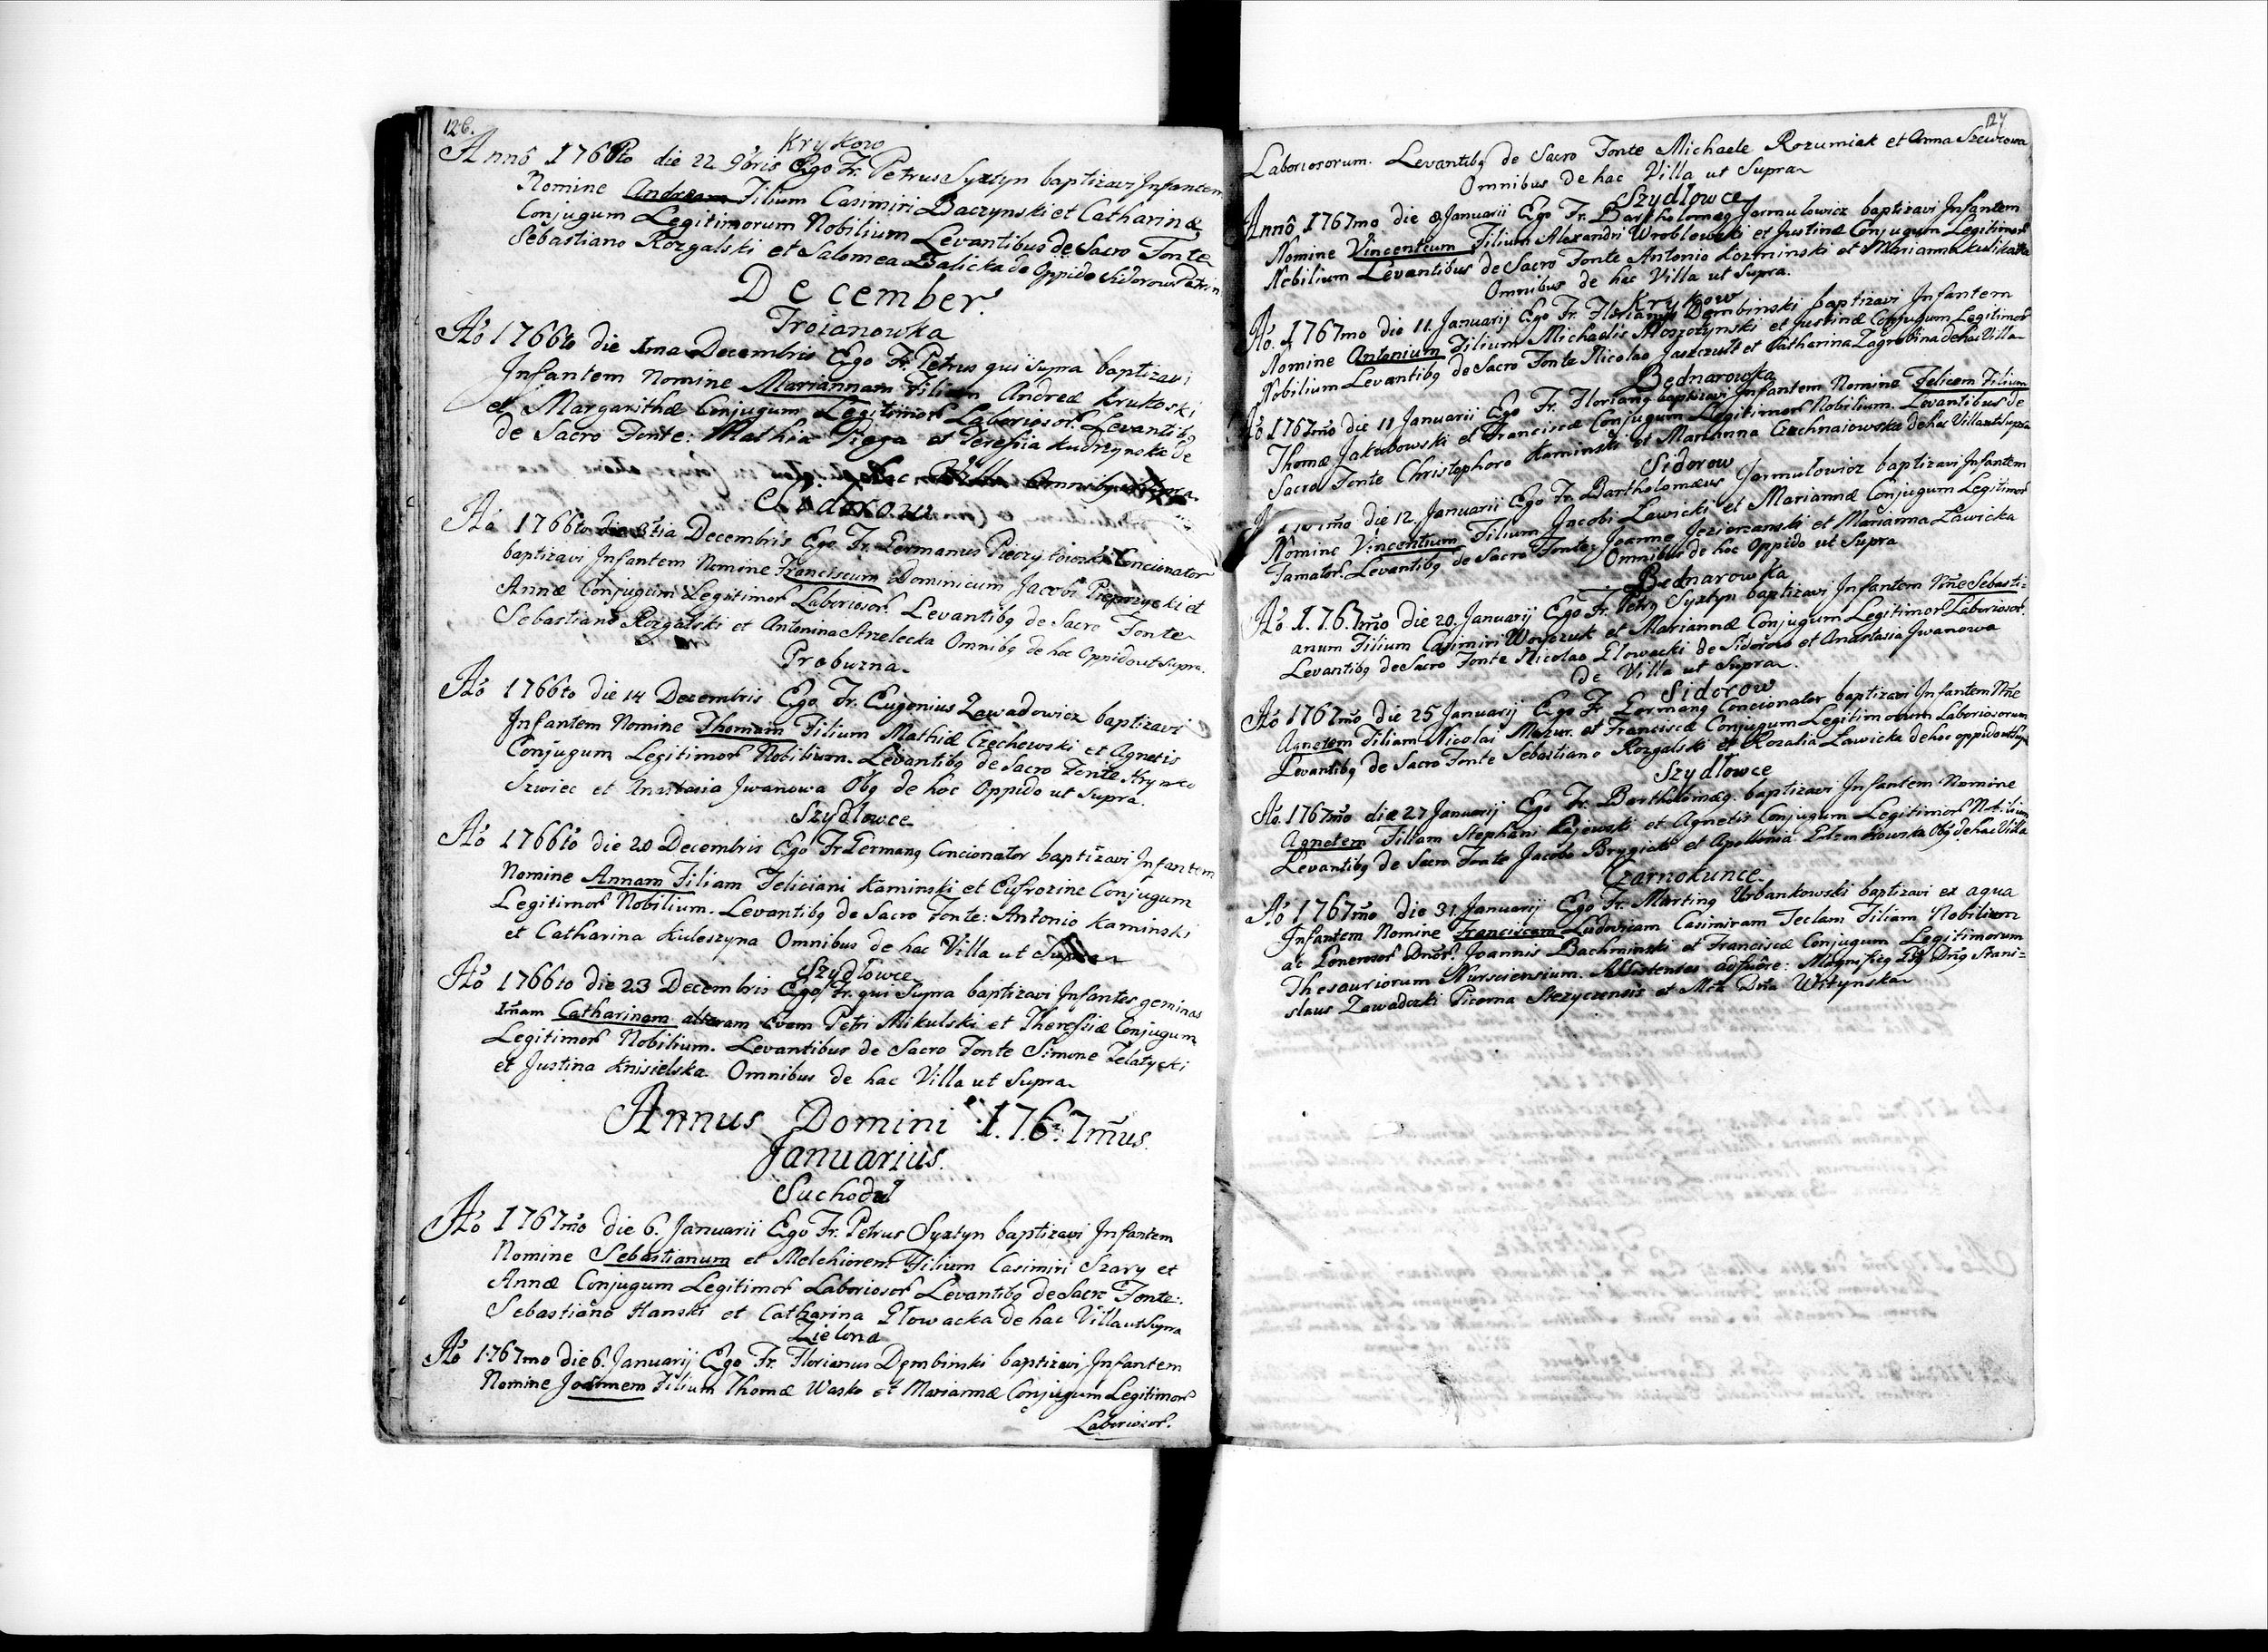 126.
Krykow
Annô 1766to die 22 9bris Ego Fr. Petrus Syxtyn baptizavi Infantem
Nomine Andream Filium Casimiri Baczynski et Catharinæ
Conjugum Legitimorum Nobilium Levantibus de Sacro Fonte
Sebastiano Rozgalski et Salomea Balicka de Oppido Sidorow Patrin
December.
Troianowka
Aô 1766to die 1ma Decembris Ego Fr. Petrus qui supra baptizavi
Infantem Nomine Mariannam Filiam Andreæ Krukoski
et Margarithæ Conjugum Legitimor Laboriosor. Levantibq
de Sacro Fonte: Mathia Piega et Teressia Kudrzynska de
hac Villa Omnibq ut supra.
Sidorow
Aô 1766to die 3tia Decembris Ego Fr. Germanus Concionator
baptizavi Infantem Nomine Franciscum Dominicum Jacobi Pieprzycki et
Annæ Conjugum Legitimor Laboriosor. Levantibq de Sacro Fonte
Sebastiano Rozgalski et Antonina Strzelecka Omnibq de hoc Oppido ut supra.
Probuzna
Aô 1766to die 14 Decembris Ego Fr. Eugenius Zawadowicz baptizavi
Infantem Nomine Thomam Filium Mathiæ Czechowski et Agnetis
Conjugum Legitimor Nobilium. Levantibq de Sacro Fonte Hrynko
Szwiec et Anastasia Jwanowa Obq de hoc Oppido ut supra.
Szydlowce
Aô 1766to die 20 Decembris Ego Fr Germanq Concionator baptizavi Infantem
Nomine Annam Filiam Feliciani Kaminski et Eufrozine Conjugum
Legitimor Nobilium. Levantibq de Sacro Fonte: Antonio Kaminski
et Catharina Kuleszyna Omnibus de hac Villa ut Supra
Szydlowce
Aô 1766to die 23 Decembris Ego Fr. qui Supra baptizavi Infantes geminas
1mam Catharinam alteram Evam Petri Mikulski et Theressiæ Conjugum
Legitimor Nobilium. Levantibus de Sacro Fonte Simone Zelatycki
et Justina Knisielska Omnibus de hac Villa ut Supra
Annus Domini 1.7.6.7mus.
Januarius.
Suchodol
Aô 1767mo die 6. Januarii Ego Fr. Petrus Syxtyn baptizavi Infantem
Nomine Sebastianum et Melchiorem Filium Casimiri Szary et
Annæ Conjugum Legitimor Laboriosor Levantibq de Sacro Fonte:
Sebastiano Hanski et Catharina Glowacka de hac Villa ut Supra
Zielona
Aô 1767mo die 6. Januarij Ego Fr. Florianus Dembinski baptizavi Infantem
Nomine Joannem Filium Thomæ Wasko et Mariannæ Conjugum Legitimor
Laboriosor.
127
Laboriosorum. Levantibq de Sacro Fonte Michaele Rozumiak et Anna Szewcowa
Omnibus de hac Villa ut Supra
Szydlowce
Annô 1767mo die 8 Januarii Ego Fr. Bartholomæq Jarmulowicz baptizavi Infantem
Nomine Vincentium Filium Alexandri Wroblewski et Justinæ Conjugum Legitimor
Nobilium Levantibus de Sacro Fonte Antonio Kozminski et Marianna Kulikata
Omnibus de hac Villa ut Supra.
Krykow
Aô. 1767mo die 11. Januarij Ego Fr. Florianq Dembinski baptizavi Infantem
Nomine Antonium Filium Michaelis Moszczynski et Justinæ Conjugum Legitimor
Nobilium Levantibq de Sacro Fonte Nicolao Jaszczult et Catharina Zagrobina de hac Villa
Bednarowka
Aô 1767mo die 11 Januarii Ego Fr. Florianq baptizavi Infantem Nomine Felicem Filium
Thomæ Jakubowski et Franciscæ Conjugum Legitimor Nobilium. Levantibus de
Sacro Fonte Christophoro Kaminski et Marianna Czechnaiowska de hac Villa ut Supra
Sidorow
mo die 12. Januarii Ego Fr. Bartholomæus Jarmulowicz baptizavi Infantem
Nomine Vincentium Filium Jacobi Lawicki et Mariannæ Conjugum Legitimor
Famator. Levantibq de Sacro Fonte: Joanne Jezierzanski et Marianna Lawicka
Omnibus de hoc Oppido ut Supra
Bednarowka
Aô 1.7.6.7mo die 20. Januarij Ego Fr. Petrq Syxtyn baptizavi Infantem Nne Sebasti=
anum Filium Casimiri Woyczuk et Mariannæ Conjugum Legitimor Laboriosor.
Levantibq de Sacro Fonte Nicolao Glowacki de Sidorow et Anastasia Jwanowa
de Villa ut Supra.
Sidorow
Aô 1767mo die 25 Januarij Ego Fr Germanq Concionator baptizavi Infantem Nne
Agnetem Filiam Nicolai Mazur et Franciscæ Conjugum Legitimorum Laboriosorum
Levantibq de Sacro Fonte Sebastiano Rozgalski et Rozalia Lawicka de hoc oppido ut Sup
Szydlowce
Aô. 1767mo die 27 Januarij Ego Fr. Bartholomæq. baptizavi Infantem Nomine
Agnetem Filiam Stephani Gajewski et Agnetis Conjugum Legitimor Nobilium
Levantibq de Sacro Fonte Jacobo Brygiato et Apollonia Obq de hac Villa
Czarnokunce.
Aô 1767mo die 31. Januarij Ego Fr. Martinq Urbankowski baptizavi ex aqua
Infantem Nomine Franciscam Ludovicam Casimiram Teclam Filiam Nobilium
ac Generosor Dnor. Joannis Bachminski et Franciscæ Conjugum Legitimorum
Thesauriorum Nursciensium. Assistentes adfuêre: Magnificq Dnq Stani=
slaus Zawadzki Picerna Stezycensis et Dna Witynska